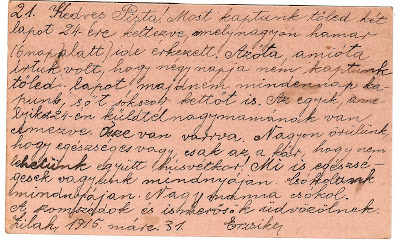 21. Kedves Pista! Most kaptunk tőled két
lapot 24-ére keltezve, amely nagyon hamar
(6 nap alatt) ide érkezett. Azóta, amióta
írtuk volt, hogy négy napja nem kaptunk
tőled lapot majdnem mindennap ka-
punk, sőt sokszor kettőt is. Az egyik, ame-
lyiket 24-én küldtél nagymamának van
címezve. Össze van varrva. Nagyon örülünk,
hogy egészséges vagy, csak az a kár, hogy nem
lehetünk együtt húsvétkor! Mi is egészsé-
gesek vagyunk mindnyájan. Csókolunk
mindnyájan. Nagymama csókol.
A komszédok és ismerősök üdvözölnek.
Zilah, 1915. márc. 31. Erzsike